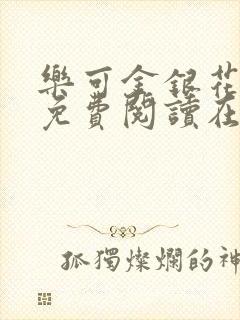 樂可金銀花
免費閱讀在
孤獨燦爛的神